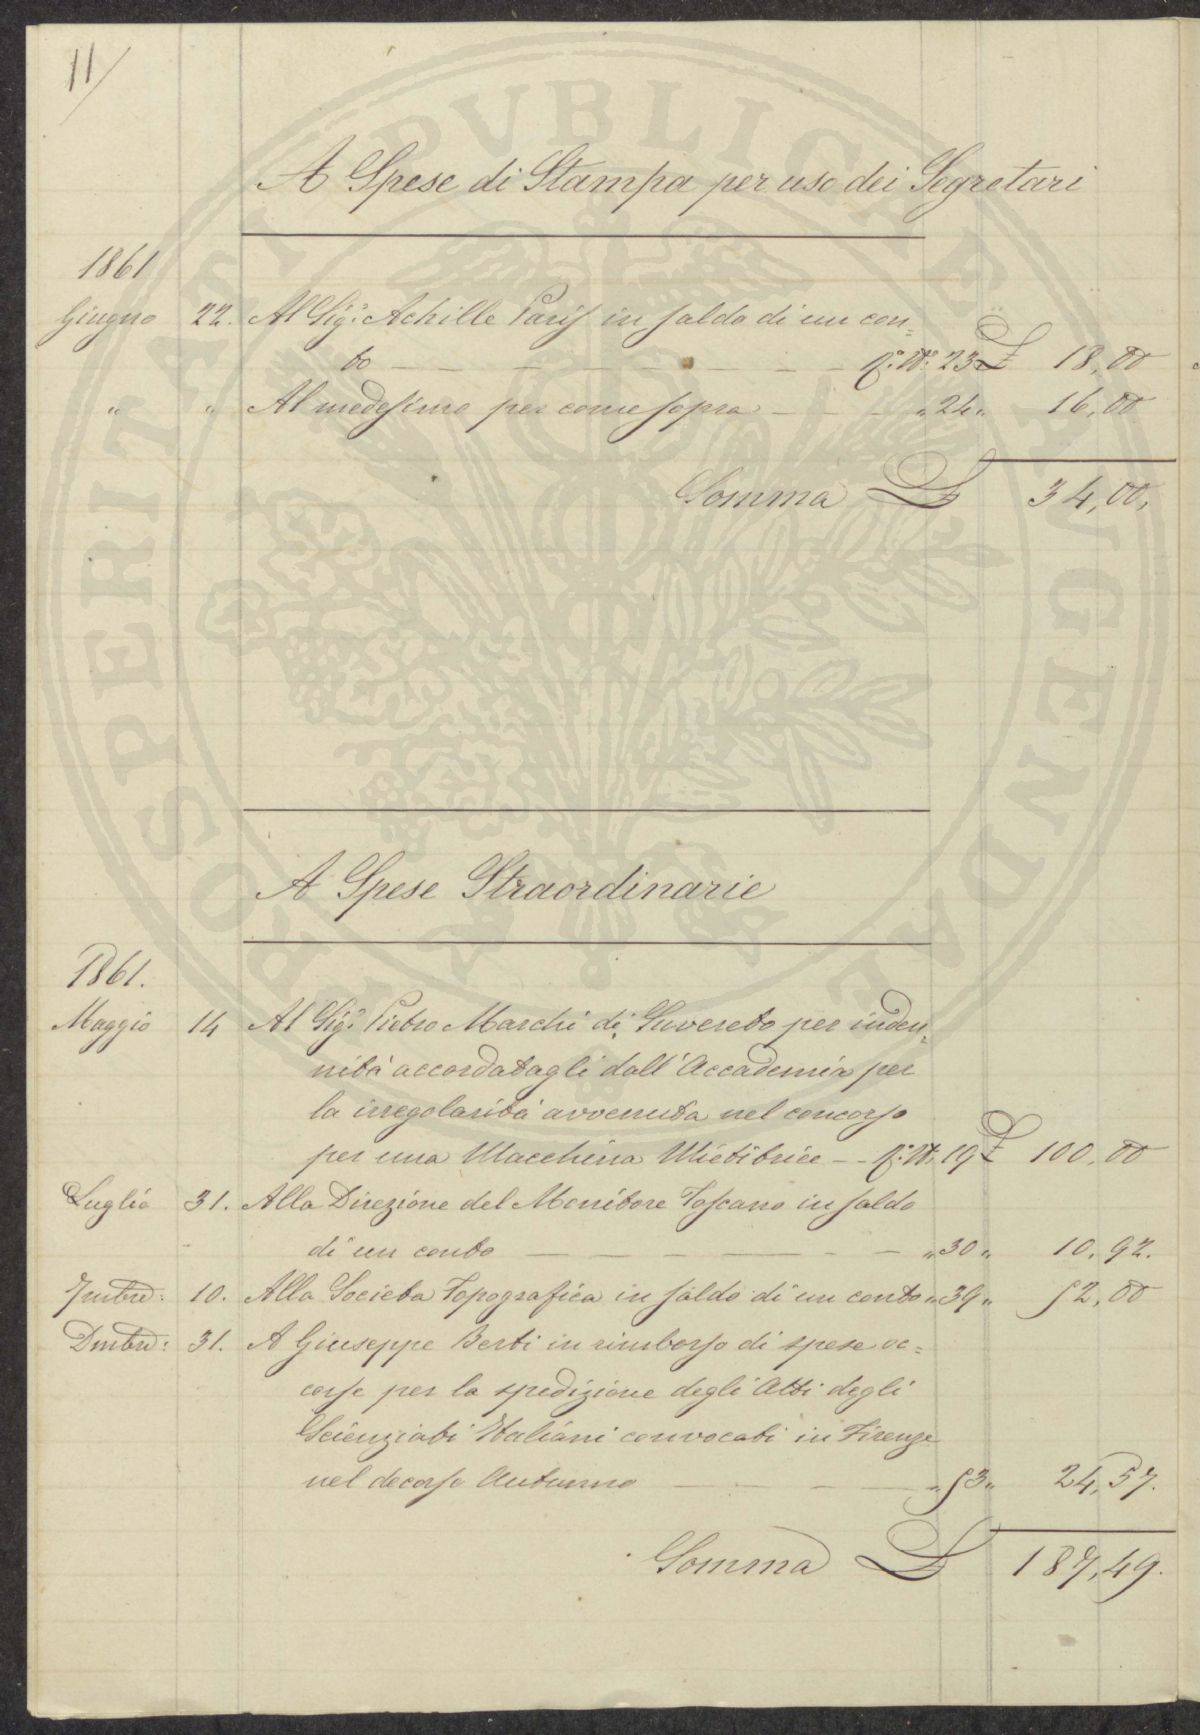 11/
A Spese di Stampa per uso dei Segretari
1861
Giugno 22. Al Sig.r Achille Paris in saldo di un con=
to — — — — — — — R.a N.o 23 £ 18,00
" " Al medesimo per come sopra — — — " 24 " 16,00
Somma £ 34,00,
A Spese Straordinarie
1861.
Maggio 14 Al Sig.r Pietro Marchi di Suvereto per inden=
nità accordatagli dall'Accademia per
la irregolarità avvenuta nel concorso
per una Macchina Mietitrice — R.a N.o 19 £ 100,00
Luglio 31. Alla Direzione del Monitore Toscano in saldo
di un conto — — — — — — — " 30 " 10,92.
7mbre: 10. Alla Societa Topografica in saldo di un conto " 39 " 52,00
Dmbre: 31. A Giuseppe Berti in rimborso di spese oc=
corse per la spedizione degli Atti degli
Scienziati Italiani convocati in Firenze
nel decorso Autunno — — — " 53 " 24,57.
Somma £ 187,49.
PROSPERITATI PVBLICAE AVGENDAE